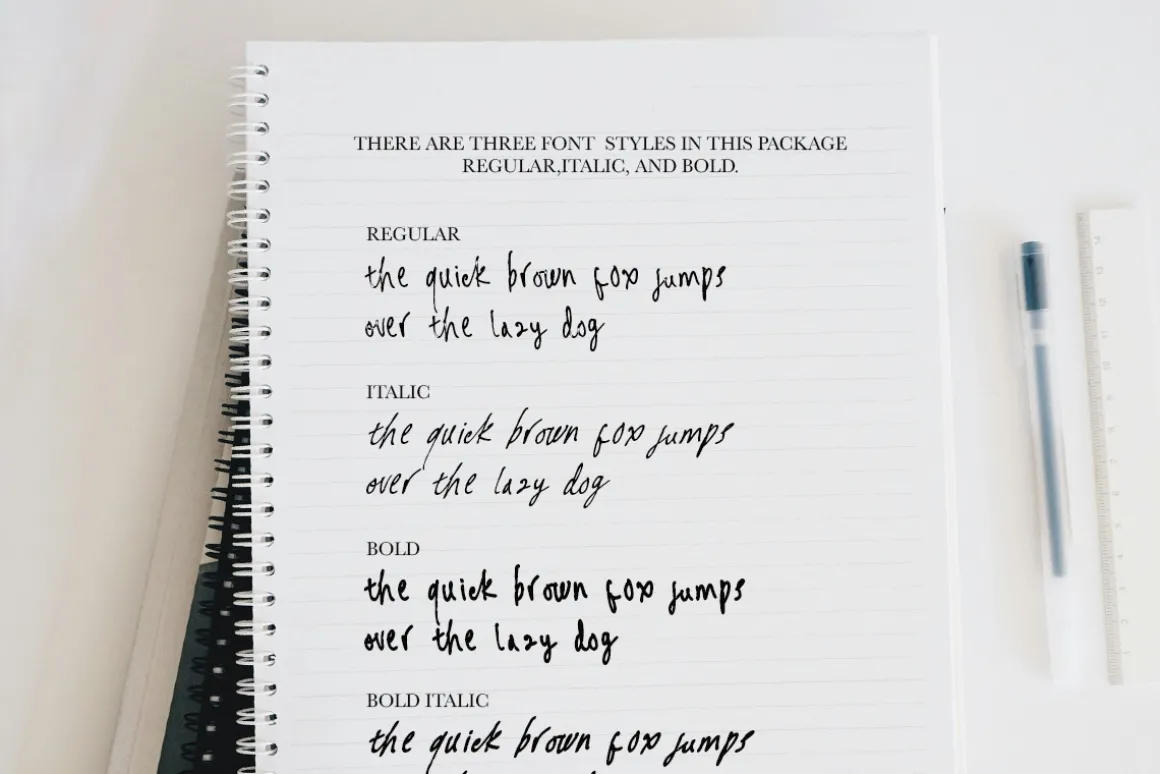 THERE ARE THREE FONT STYLES IN THIS PACKAGE
REGULAR,ITALIC, AND BOLD.
REGULAR
the quick brown fox jumps
over the lazy dog
ITALIC
the quick brown fox jumps
over the lazy dog
BOLD
the quick brown fox jumps
over the lazy dog
BOLD ITALIC
the quick brown fox jumps